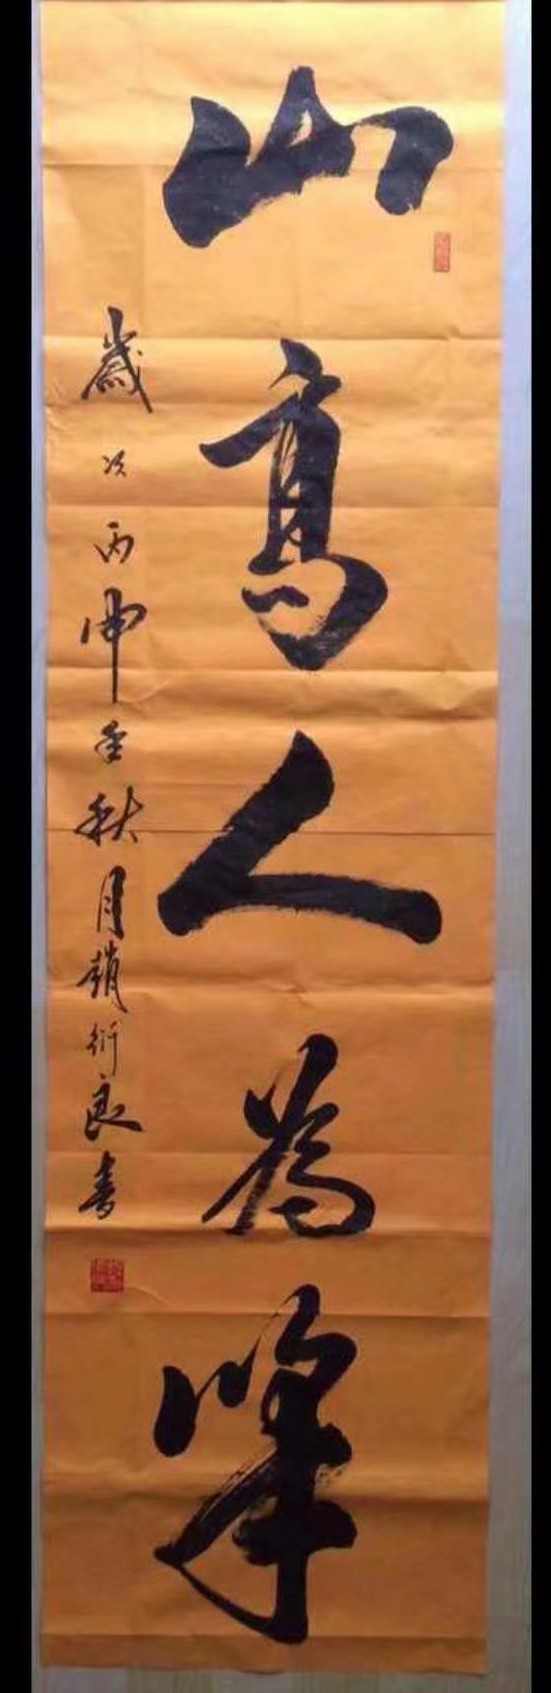 山高人为峰
歲次丙申年秋月趙衍良書